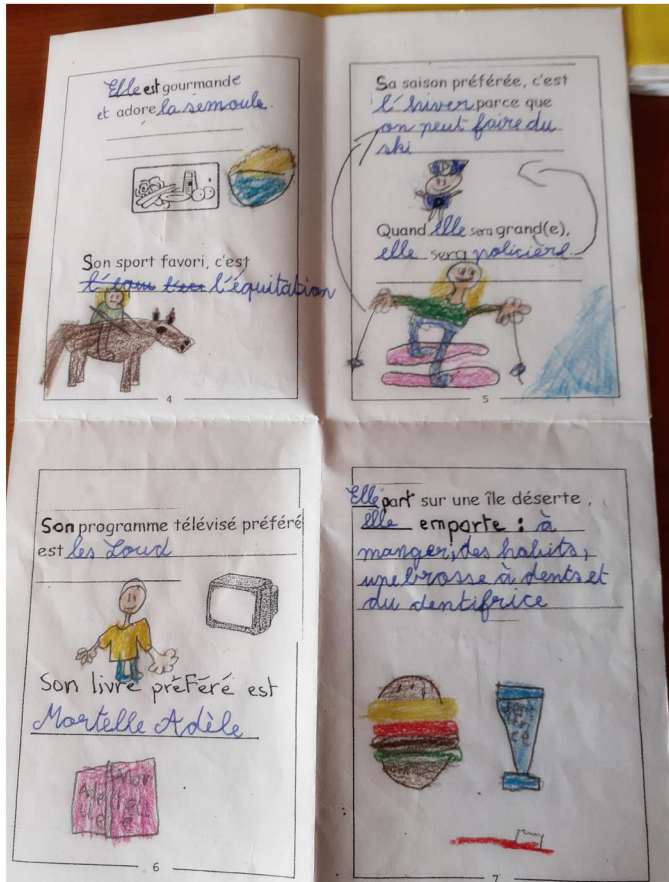 Elle est gourmande
et adore la semoule.
Son sport favori, c'est
l'équitation
4
Sa saison préférée, c'est
l'hiver parce que
on peut faire du
ski
Quand elle sera grand(e),
elle sera policière.
5
Son programme télévisé préféré
est les Loud
Son livre préféré est
Mortelle Adèle
6
Elle part sur une île déserte,
elle emporte : à
manger, des habits,
une brosse à dents et
du dentifrice
7